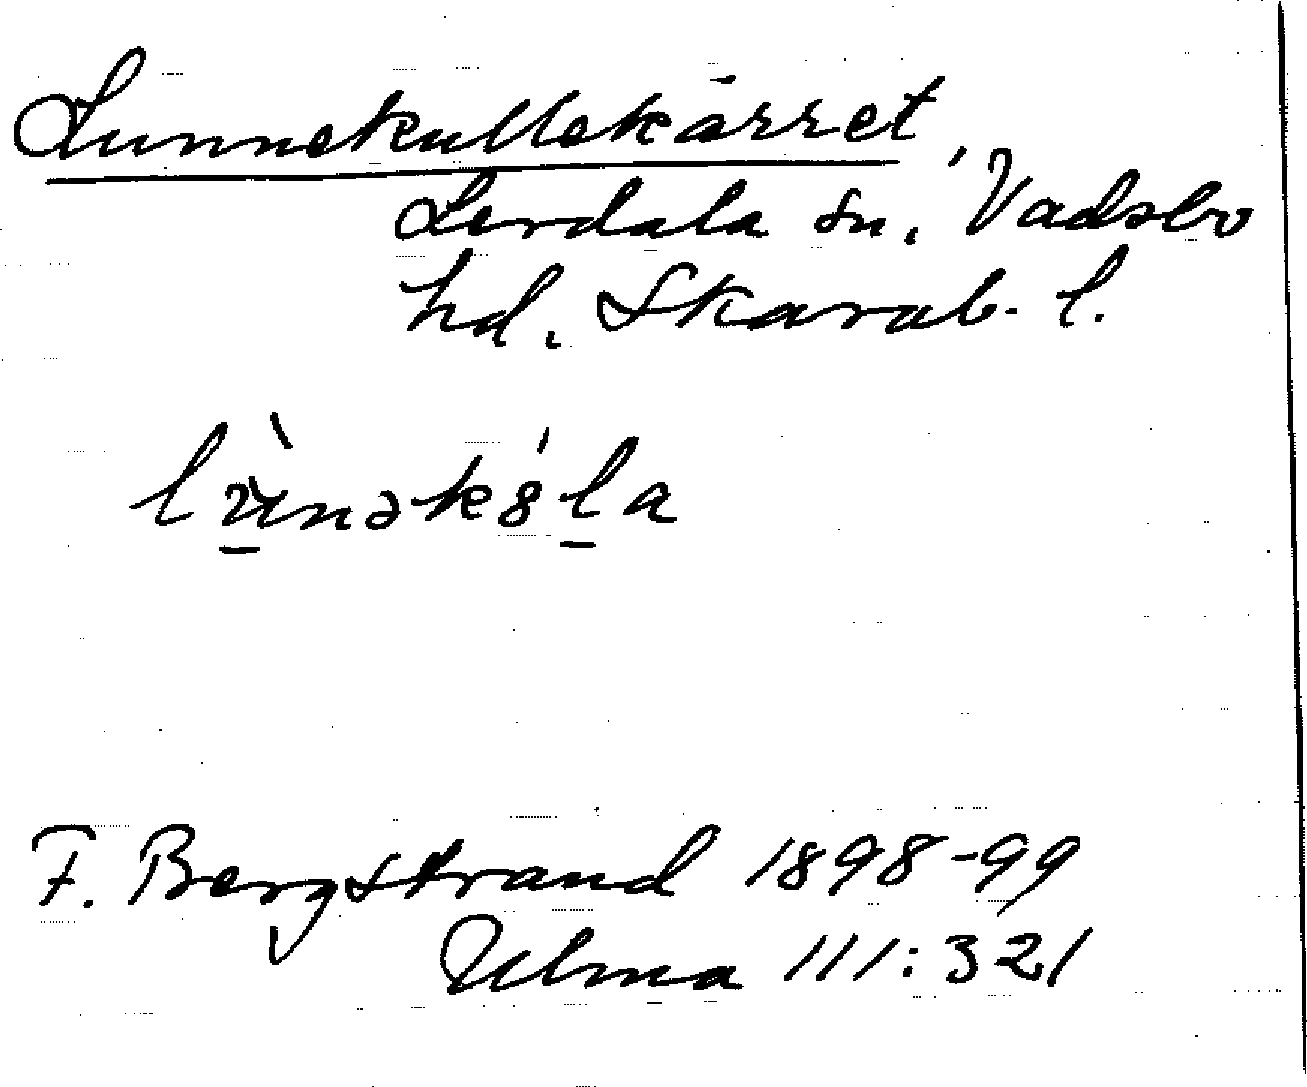 Lunnekullekärret,
Lerdala sn, Vadsbo
hd. Skarab. l.
lùnəkȣ́la
F. Bergstrand 1898-99
Ulma 111:321